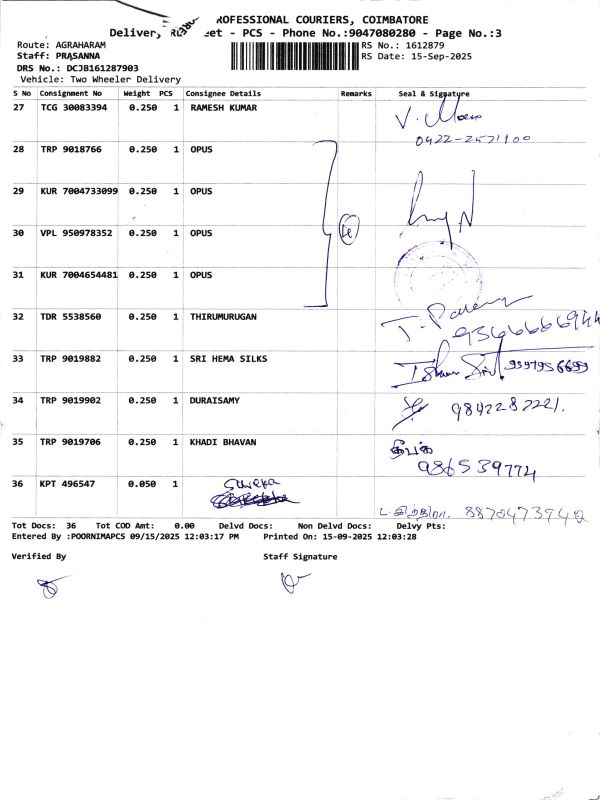 ROFESSIONAL COURIERS, COIMBATORE
Delivery Ru eet - PCS - Phone No.:9047080280 - Page No.:3
Route: AGRAHARAM
RS No.: 1612879
Staff: PRASANNA
RS Date: 15-Sep-2025
DRS No.: DCJB161287903
Vehicle: Two Wheeler Delivery
S No Consignment No Weight PCS Consignee Details Remarks Seal & Signature
27 TCG 30083394 0.250 1 RAMESH KUMAR
0422-2571100
28 TRP 9018766 0.250 1 OPUS
29 KUR 7004733099 0.250 1 OPUS
30 VPL 950978352 0.250 1 OPUS
31 KUR 7004654481 0.250 1 OPUS
32 TDR 5538560 0.250 1 THIRUMURUGAN
33 TRP 9019882 0.250 1 SRI HEMA SILKS
34 TRP 9019902 0.250 1 DURAISAMY
9842287221.
35 TRP 9019706 0.250 1 KHADI BHAVAN
தீபக்
986539774
36 KPT 496547 0.050 1
Tot Docs: 36 Tot COD Amt: 0.00 Delvd Docs: Non Delvd Docs: Delvy Pts:
Entered By :POORNIMAPCS 09/15/2025 12:03:17 PM Printed On: 15-09-2025 12:03:28
Verified By Staff Signature